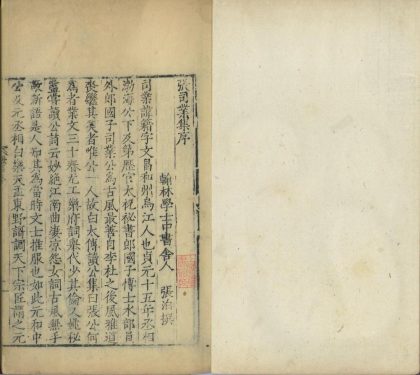 張司業集序
翰林學士中書舍人 張洎撰
司業諱籍字文昌和州烏江人也貞元十五年丞相
渤海公下及第歷官太祝秘書郎國子博士水部員
外郎國子司業公為古風最善自李杜之後風雅道
喪繼其美者唯公一人故白太傅讀公集曰張公何
為者業文三十春尤工樂府詞舉代少其倫又姚秘
監嘗讀公詩云妙絕江南曲凄涼怨女詞古風無手
敵新語是人知其為當時文士推服也如此元和中
公及元丞相白樂天孟東野詞天下宗匠謂之元